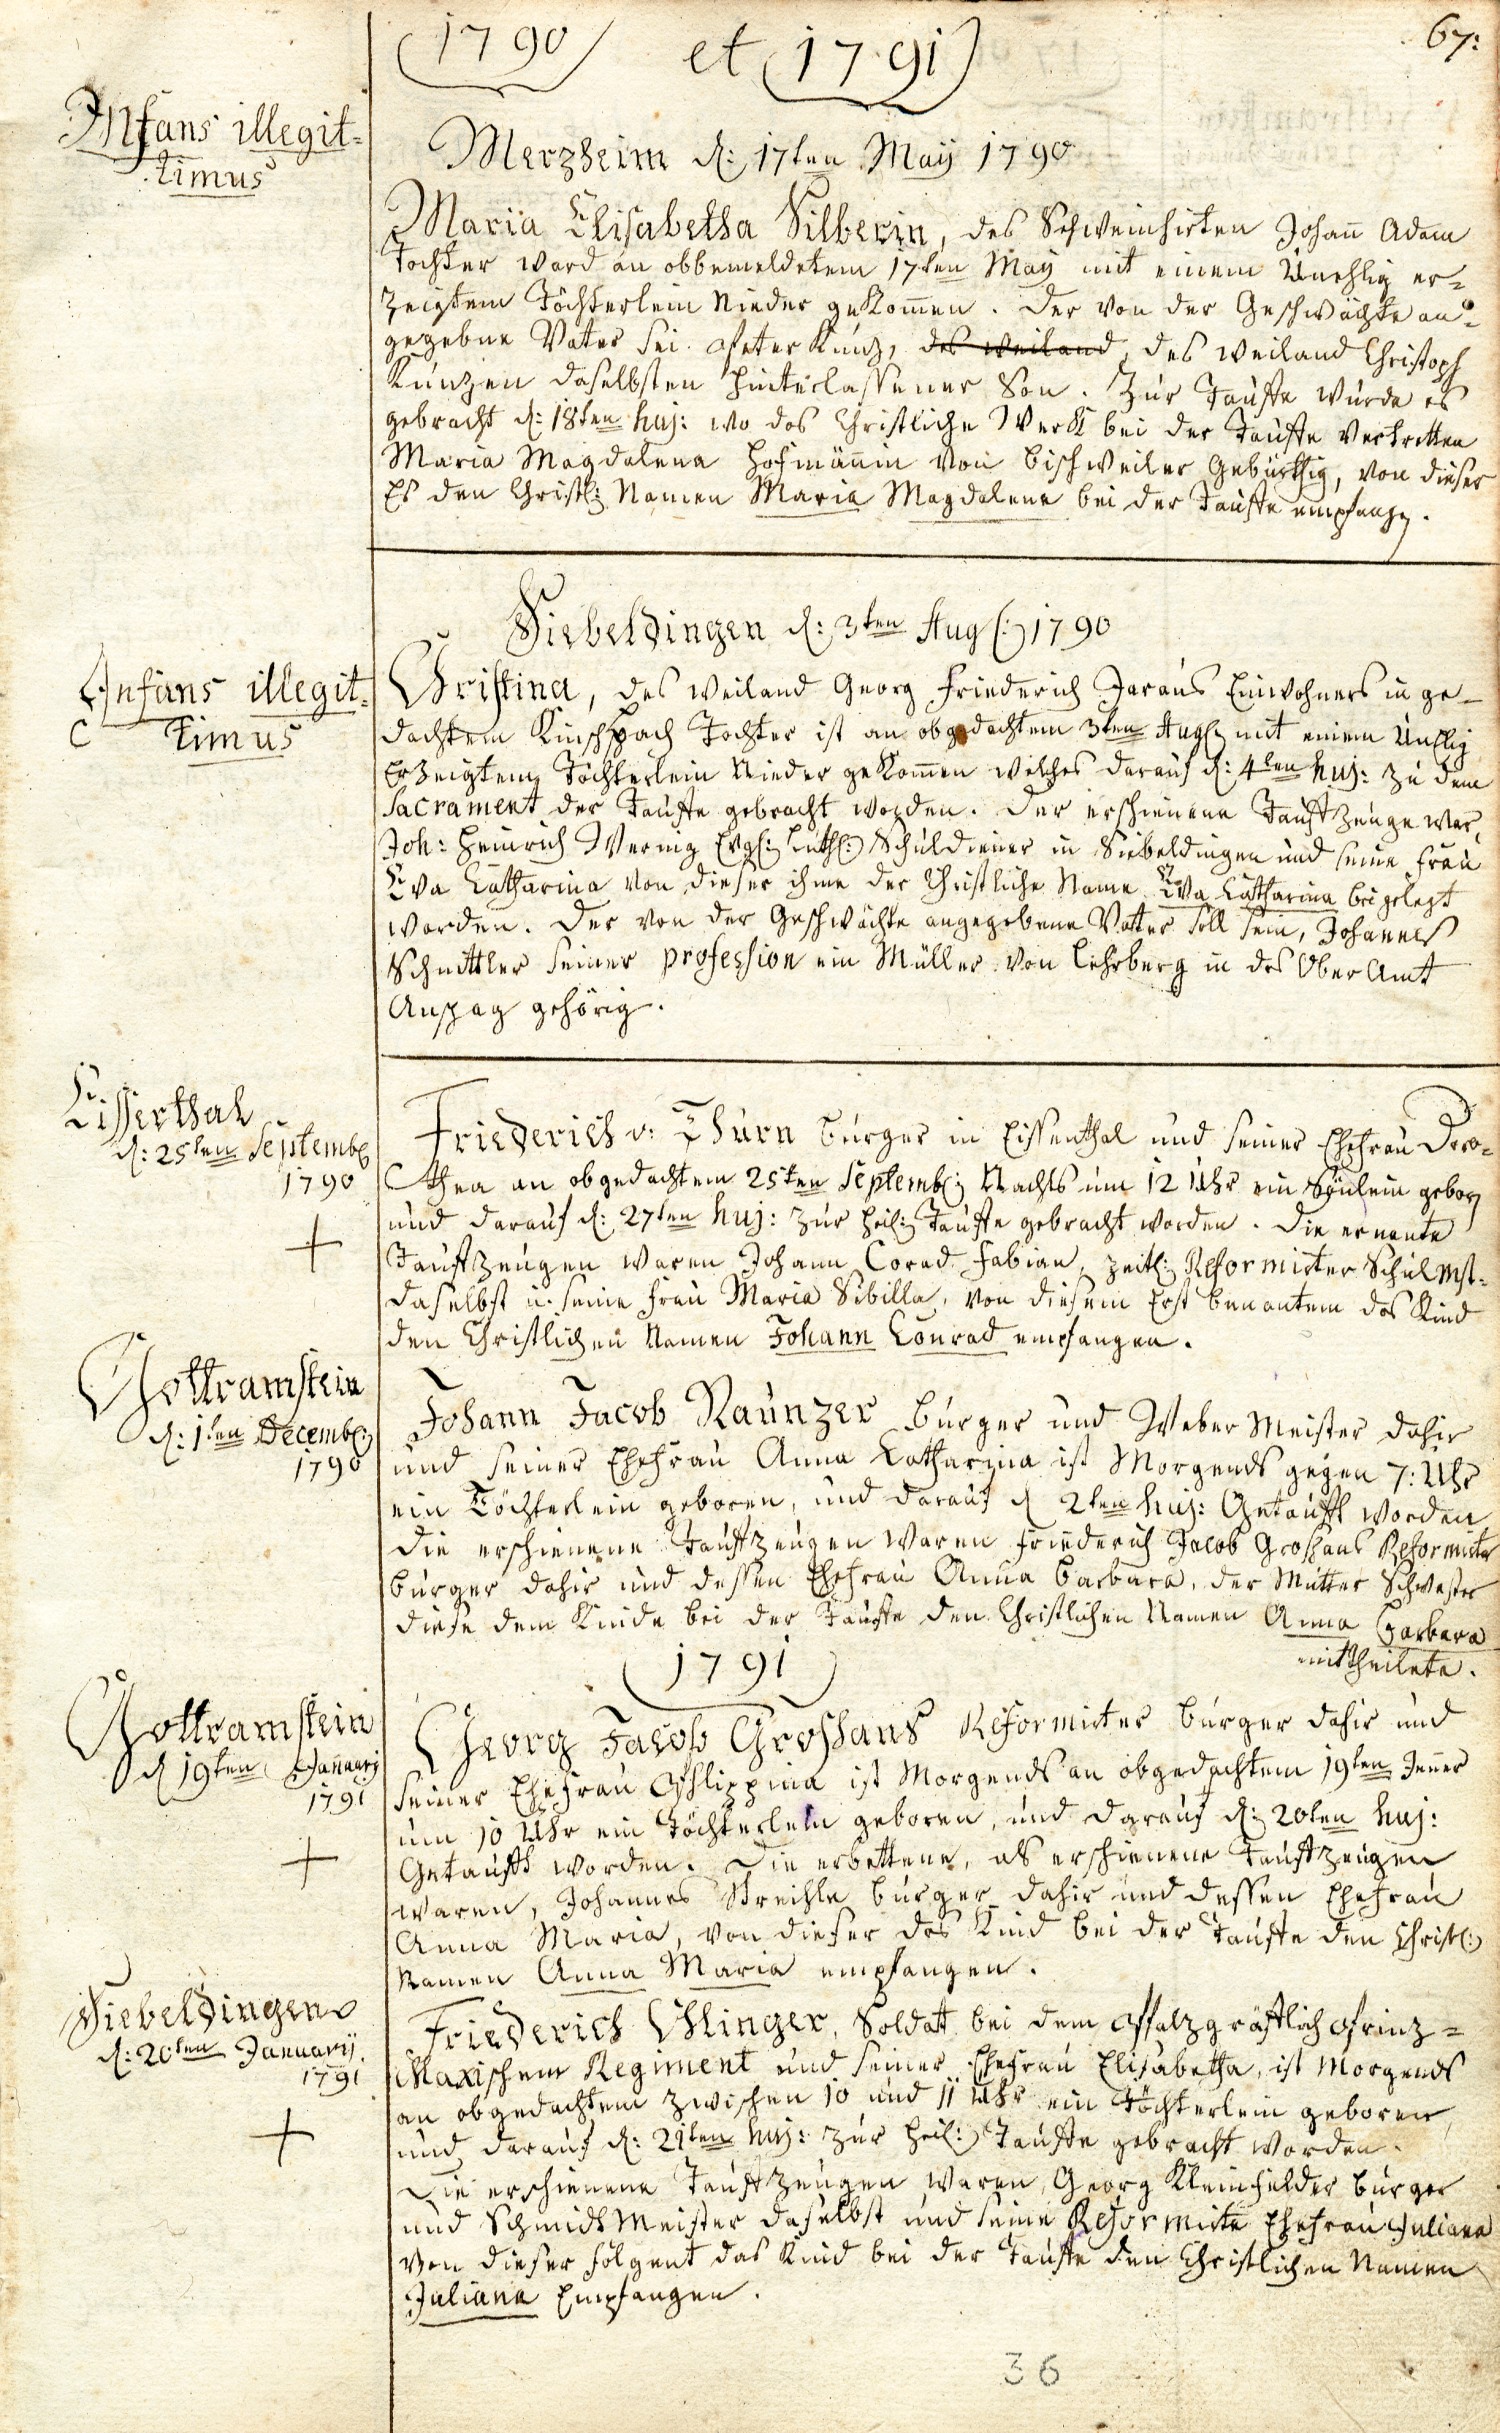 1790 et 1791
67:
Infans illegit=
timus
Merzheim d: 17ten May 1790
Maria Elisabetha Silberin, des Schweinhirten Johañ Adam
Tochter ward an obbemeldetem 17ten May mit einem Unehlig er=
zeigtem Töchterlein Nieder gekom̃en. Der von der Geschwächte an=
gegebne Vater sei Peter Kunz, des weiland, des weiland Christoph
Kunzen daselbsten hinterlassener Son. Zur Tauffe wurde es
gebracht d: 18ten huj: wo das Christliche Werk bei der Tauffe Vertretten
Maria Magdalena Hofmäñin von Bischweiler Gebürthig, von dieser
Es den Christl: Namen Maria Magdalena bei der Tauffe empfang.
Siebeldingen d: 3ten Aug(:) 1790
Infans illegit=
timus
Christina, des weiland Georg Friederich Jaraus Einwohners in ge=
dachtem Tochter ist an obgedachtem 3ten Aug: mit einem Unehlig
Erzeigtem Töchterlein Nieder gekom̃en welches darauf d: 4ten huj: zu dem
Sacrament der Tauffe gebracht worden. Der erschienene Tauffzeuge war,
Joh: Heinrich Wering Evgl: Luth(:) Schuldiener in Siebeldingen und seine Frau
Eva Catharina von dieser ihme der Christliche Name Eva Catharina bei gelegt
worden. Der von der Geschwächte angegebene Vater soll sein, Johannes
Schnittler seiner profession ein Müller von Lehrberg in das Ober Amt
Anspag gehörig.
Eisserthal
d: 25ten Septemb:
1790
Friederich v: Thurn Burger in Eissenthal und seiner Ehefrau Doro=
thea an obgedachtem 25ten Septemb: Nachts um 12 Uhr ein Sönlein gebor
und darauf d: 27ten huj: zur heil: Tauffe gebracht worden. Die ernante
Tauffzeugen waren Johann Corad Fabian, zeitl: Reformirter Schulmst=
daselbst u. seine Frau Maria Sibilla, von diesem Erst benantem das Kind
den Christlichen Namen Johann Conrad empfangen.
Gottramstein
d: 1ten Decemb:
1790
Johann Jacob Raunzer Burger und Weber Meister dahir
und seiner Ehefrau Anna Catharina ist Morgends gegen 7: Uhr
ein Töchterlein geboren, und darauf d 2ten huj: Getaufft worden
die erschienene Tauffzeugen waren Friederich Jacob Groshans Reformirter
Burger dahir und dessen Ehefrau Anna Barbara, der Mutter Schwester
diese dem Kinde bei der Tauffe den Christlichen Namen Anna Barbara
mittheilete.
1791
Gottramstein
d 19ten January
1791
Georg Jacob Groshans Reformirter Burger dahir und
seiner Ehefrau Philippina ist Morgends an obgedachtem 19ten Jen̄er
um 10 Uhr ein Töchterlein geboren, und darauf d: 20ten huj:
Getaufft worden. Die erbettene, als erschienene Tauffzeugen
waren, Johannes Streichle Burger dahir und dessen Ehefrau
Anna Maria, von dieser das Kind bei der Tauffe den Christ(:)
Namen Anna Maria empfangen.
Siebeldingen
d: 20ten January
1791
Friederich Uhlinger, Soldatt bei dem Pfalzgräfflich Prinz=
Maxischem Regiment und seiner Ehefrau Elisabetha, ist Morgends
an obgedachtem zwischen 10 und 11 Uhr ein Töchterlein geboren
und darauf d: 21ten huj: zur heil:) Tauffe gebracht worden.
Die erschienene Tauffzeugen waren, Georg Kleinfelder Burger
und Schmidt Meister daselbst und seine Reformirte Ehefrau Juliana
von dieser folgent das Kind bei der Tauffe den Christlichen Namen
Juliana Empfangen.
36